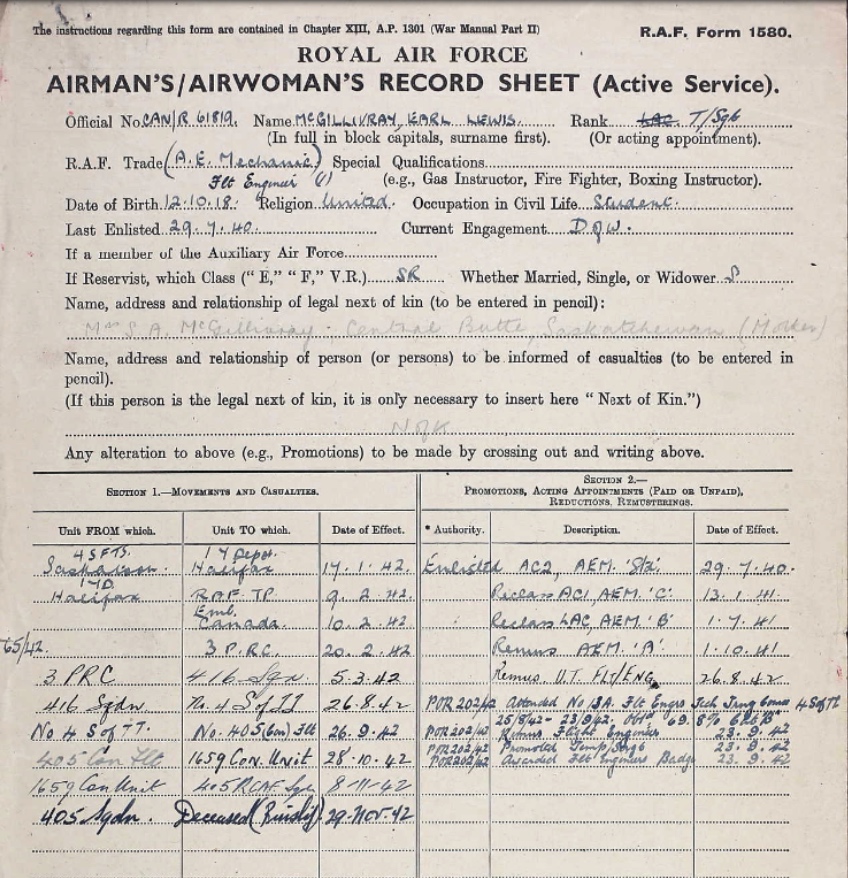 The instructions regarding this form are contained in Chapter XIII, A.P. 1301 (War Manual Part II)
R.A.F. Form 1580.
ROYAL AIR FORCE
AIRMAN'S/AIRWOMAN'S RECORD SHEET (Active Service).
Official No. CAN/R 61819. Name McGILLIVRAY, EARL LEWIS. Rank LAC T/Sgt
(In full in block capitals, surname first). (Or acting appointment).
R.A.F. Trade (A.E. Mechanic) Special Qualifications
Flt Engineer (e.g., Gas Instructor, Fire Fighter, Boxing Instructor).
Date of Birth 12.10.18. Religion United. Occupation in Civil Life Student.
Last Enlisted 29.7.40. Current Engagement D of W.
If a member of the Auxiliary Air Force
If Reservist, which Class ("E," "F," V.R.) SR Whether Married, Single, or Widower S
Name, address and relationship of legal next of kin (to be entered in pencil):
Mrs S.A. McGillivray - Central Butte, Saskatchewan (Mother)
Name, address and relationship of person (or persons) to be informed of casualties (to be entered in
pencil).
(If this person is the legal next of kin, it is only necessary to insert here "Next of Kin.")
N of K
Any alteration to above (e.g., Promotions) to be made by crossing out and writing above.
SECTION 1.—MOVEMENTS AND CASUALTIES.
SECTION 2.—
PROMOTIONS, ACTING APPOINTMENTS (PAID OR UNPAID),
REDUCTIONS, REMUSTERINGS.
Unit FROM which. Unit TO which. Date of Effect. * Authority. Description. Date of Effect.
4 SFTS. 1 Y Depot.
Saskatoon Halifax 17.1.42. Enlisted AC2, AEM. 29.7.40.
1 YD
Halifax RAF TP 9.2.42. Reclass AC1, AEM 'C' 13.1.41
Emb.
Canada. 10.2.42 Reclass LAC, AEM 'B' 1.7.41
65/42. 3 P.RC. 20.2.42 Remus AEM 'A' 1.10.41
3 PRC 416 Sqn 5.3.42 Remus U.T. FLT/ENG 26.8.42
416 Sqdn No. 4 S of TT 26.8.42 POR 202/42 Attended No 13A. Flt Engrs Tech Trng Course 4 S of TT
25/8/42 - 23/9/42. 69.8%
No 4 S of TT. No. 405 (Con) Flt 26.9.42 POR 202/42 Remus Flight Engineer 23.9.42
POR 202/42 Promoted Temp/Sgt 23.9.42
405 Con Flt 1659 Con. Unit 28.10.42 POR 202/42 Awarded Flt Engineers Badge 23.9.42
1659 Con Unit 405 RCAF Sqn 8-11-42
405 Sqdn. Deceased 29-Nov-42